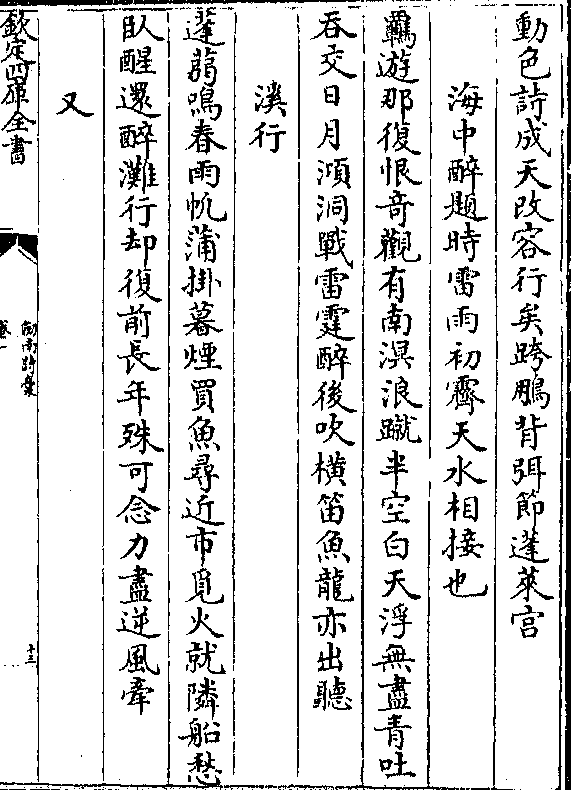 動色詩成天改容行矣跨鵬背弭節蓬萊宫
海中醉題時雷雨初霽天水相接也
羈遊那復恨竒觀有南溟浪蹴半空白天浮無盡青吐
吞交日月澒洞戰雷霆醉後吹横笛魚龍亦出聽
溪行
篷蒻鳴春雨帆蒲掛暮煙買魚尋近市覓火就隣船愁
臥醒還醉灘行却復前長年殊可念力盡逆風牽
又
欽定四庫全書
劍南詩稾
卷一
十三